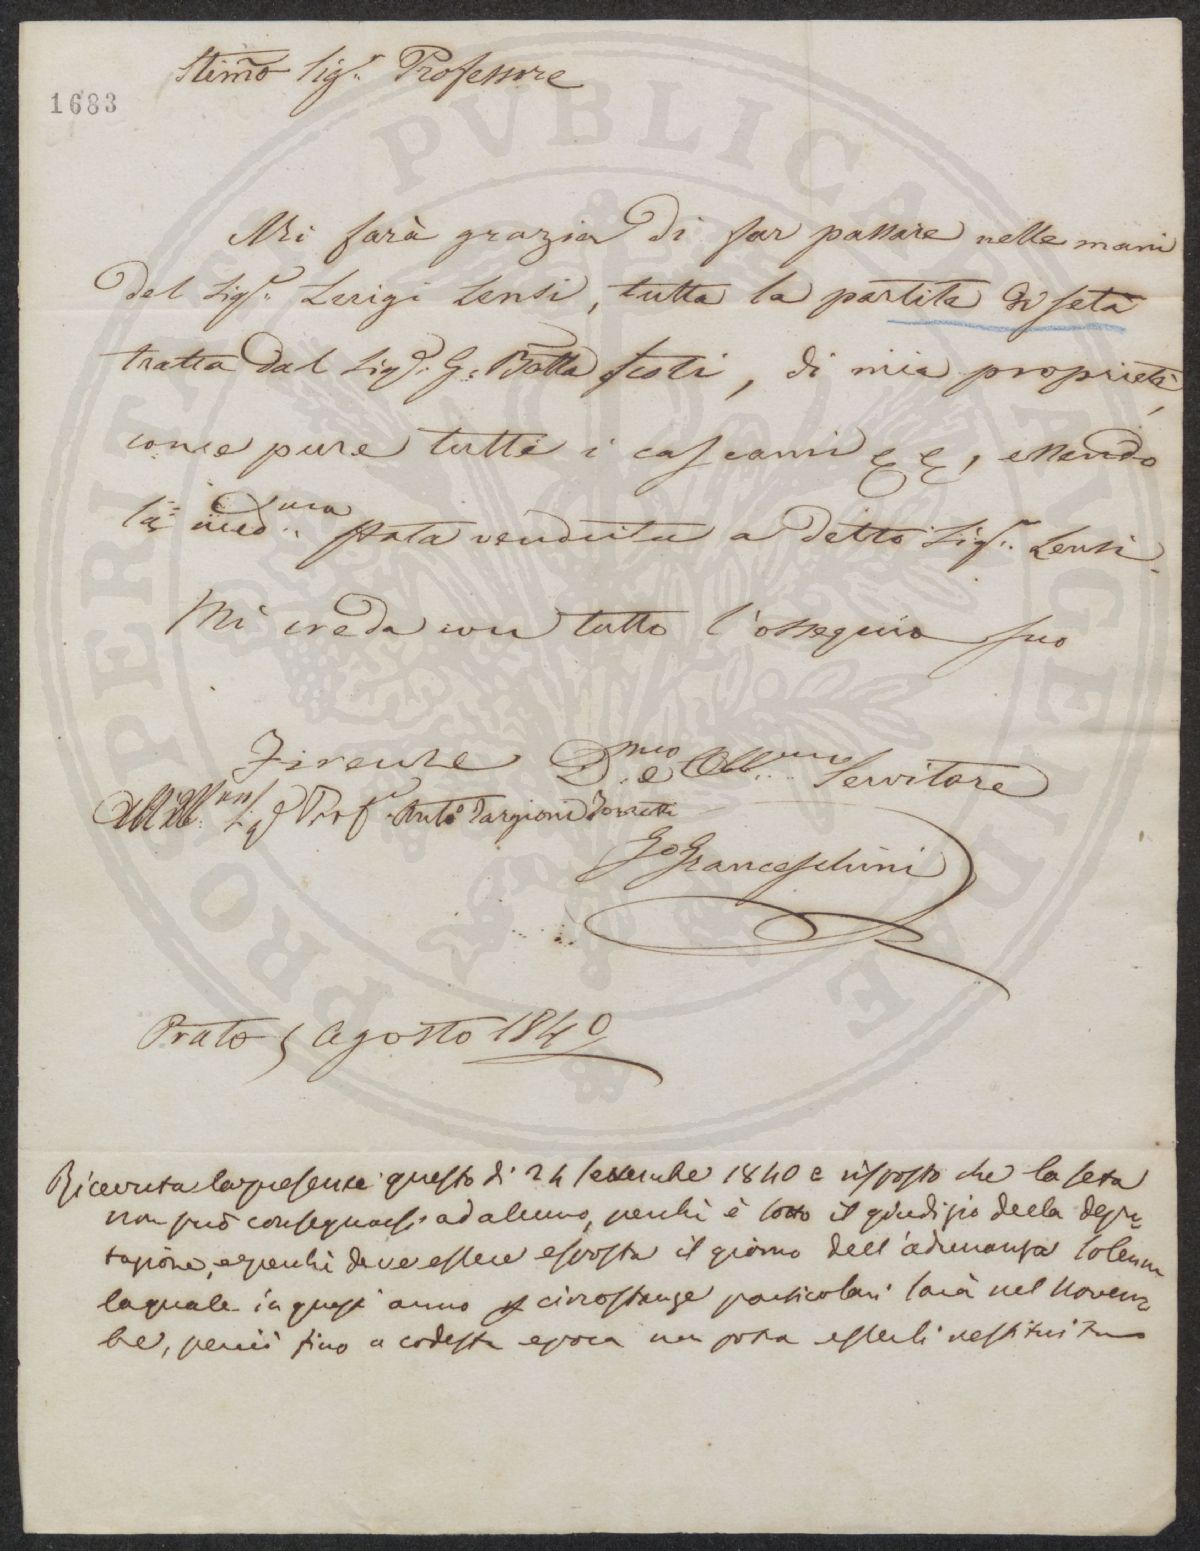 Stim̃o Sigr. Professore
1683
Mi farà grazia di far passare nelle mani
del Sigr. Luigi Lensi, tutta la partita di seta
tratta dal Sigr. G: Batta Testi, di mia proprietà,
come pure tutti i cascami &c &c, essendo
la medma stata venduta a detto Sigr. Lensi.
Mi creda con tutto l'ossequio suo
Firenze Dmo e Obbmo Servitore
All Illmo Sigr Profr. Anto Targioni Tozzetti
Go Franceschini
Prato 5 Agosto 1840
Ricevuta la presente questo dì 24 Settembre 1840 e risposto che la seta
non può consegnarsi ad alcuno, perchè è sotto il giudizio della depu-
tazione, e perchè deve essere esposta il giorno dell'adunanza solenne
la quale in quest'anno p circostanze particolari sarà nel Novem-
bre, perciò fino a codesta epoca non potrà esserli restituita